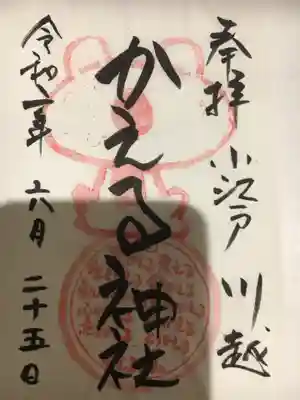 奉拝 小江戸 川越
かえる神社
令和二年 六月 二十五日